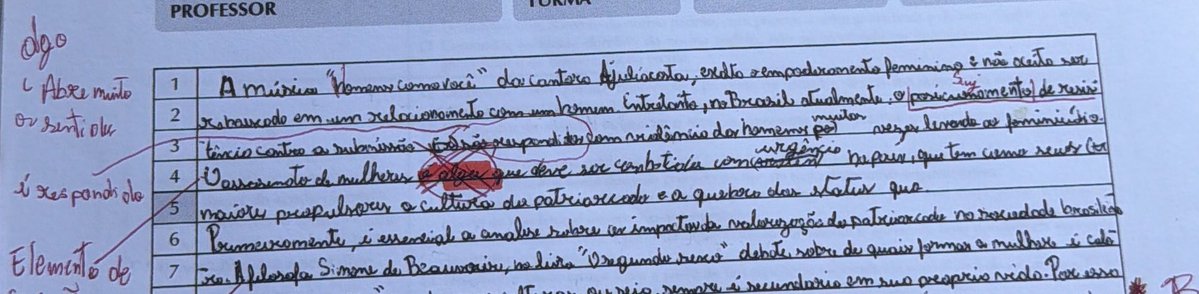 PROFESSOR
algo
↳ Abre muito
o sentido
é respondido
Elemento de
1 A música "Homens como você" da cantora Ajuliacosta, exalta o empoderamento feminino e não aceita ser
2 rebaixado em um relacionamento com um homem. Entretanto, no Brasil atualmente, o posicionamento de resis
3 tência contra a submissão respondidos com violência dos homens por muitas vezes levando ao feminicídio.
4 O assassinato de mulheres é algo que deve ser combatido com urgência no país, que tem como seus
5 maiores propulsores a cultura do patriarcado e a quebra dos status quo.
6 Primeiramente, é essencial a analise sobre os impactos da valorização do patriarcado na sociedade brasilei
7 ra. A filosofa Simone de Beauvoir, no livro "O segundo sexo" debate, sobre de quais formas a mulher é colo
sempre é secundario em sua propria vida. Por essa